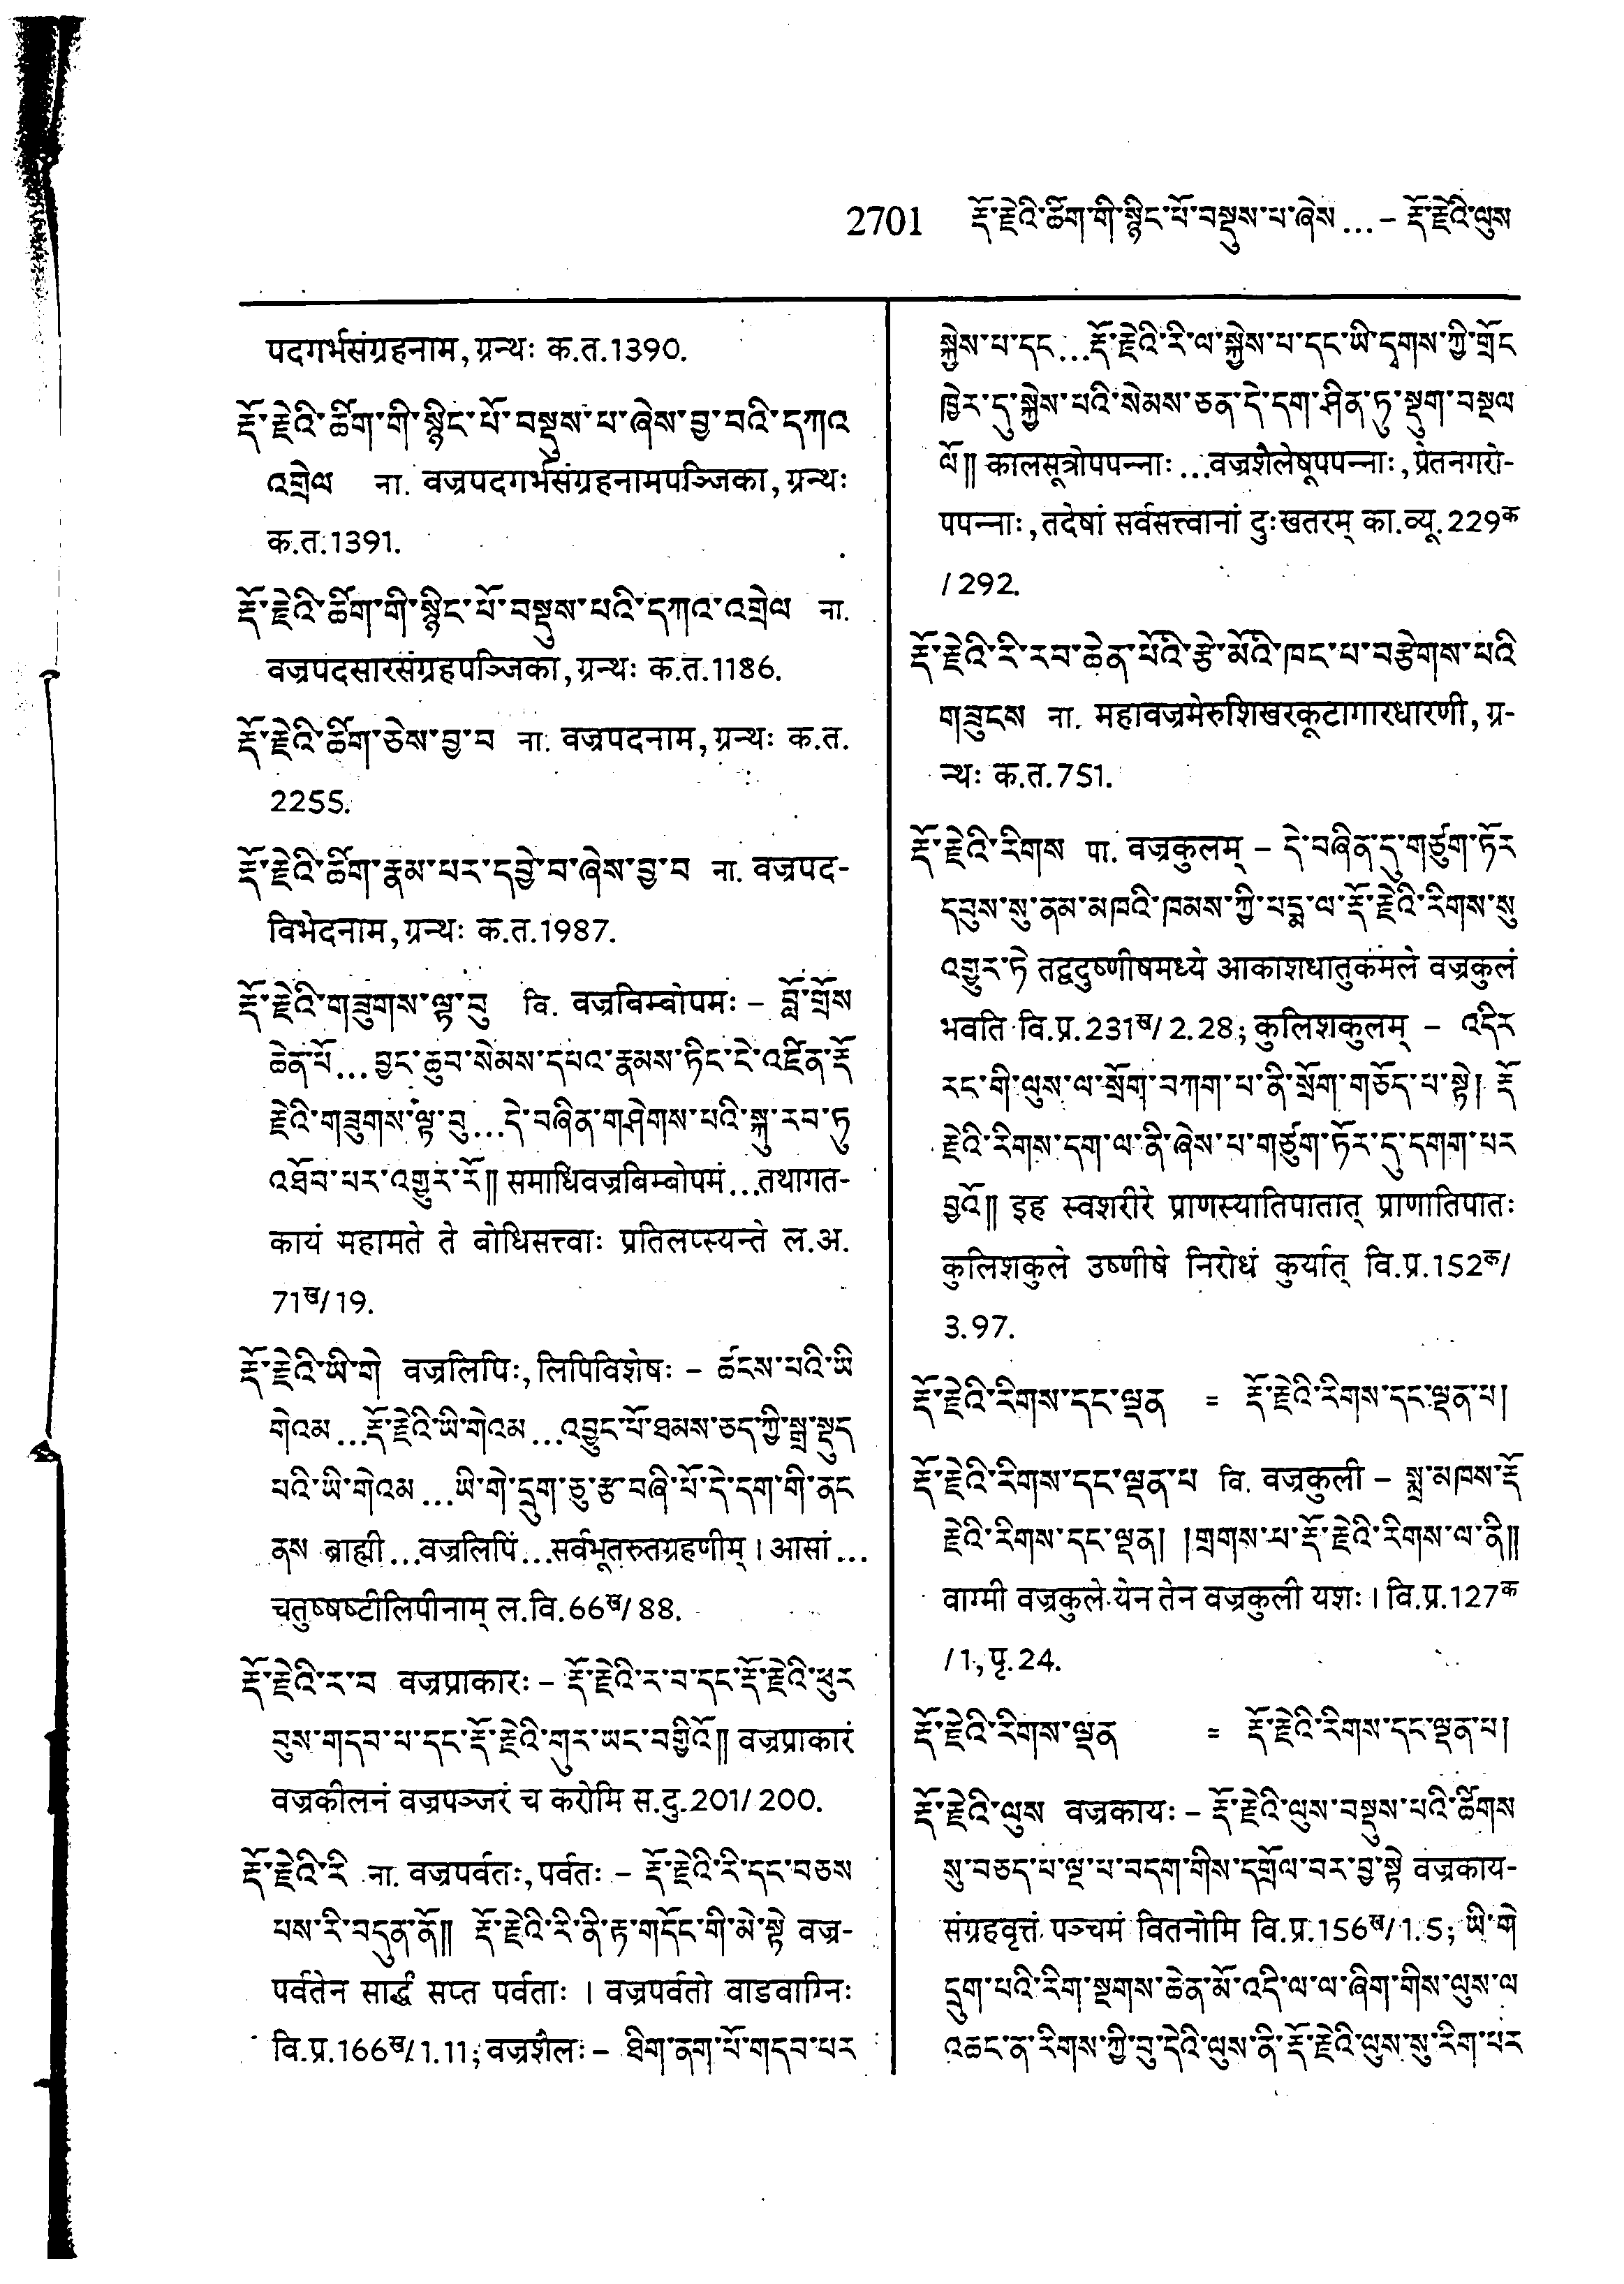 2701 རྡོ་རྗེའི་ཚིག་གི་སྙིང་པོ་བསྡུས་པ་ཞེས...– རྡོ་རྗེའི་ལུས
पदगर्भसंग्रहनाम, ग्रन्थः क.त.1390.
རྡོ་རྗེའི་ཚིག་གི་སྙིང་པོ་བསྡུས་པ་ཞེས་བྱ་བའི་དཀའ
འགྲེལ ना. वज्रपदगर्भसंग्रहनामपञ्जिका, ग्रन्थः
क.त.1391.
རྡོ་རྗེའི་ཚིག་གི་སྙིང་པོ་བསྡུས་པའི་དཀའ་འགྲེལ ना.
वज्रपदसारसंग्रहपञ्जिका, ग्रन्थः क.त.1186.
རྡོ་རྗེའི་ཚིག་ཅེས་བྱ་བ ना. वज्रपदनाम, ग्रन्थः क.त.
2255.
རྡོ་རྗེའི་ཚིག་རྣམ་པར་དབྱེ་བ་ཞེས་བྱ་བ ना. वज्रपद-
विभेदनाम, ग्रन्थः क.त.1987.
རྡོ་རྗེའི་གཟུགས་ལྟ་བུ वि. वज्रबिम्बोपमः – བློ་གྲོས
ཆེན་པོ...བྱང་ཆུབ་སེམས་དཔའ་རྣམས་ཏིང་ངེ་འཛིན་རྡོ
རྗེའི་གཟུགས་ལྟ་བུ...དེ་བཞིན་གཤེགས་པའི་སྐུ་རབ་ཏུ
འཐོབ་པར་འགྱུར་རོ༎ समाधिवज्रबिम्बोपमं...तथागत-
कायं महामते ते बोधिसत्त्वाः प्रतिलप्स्यन्ते ल.अ.
71ख/19.
རྡོ་རྗེའི་ཡི་གེ वज्रलिपिः, लिपिविशेषः – ཚངས་པའི་ཡི
གེའམ...རྡོ་རྗེའི་ཡི་གེའམ...འབྱུང་པོ་ཐམས་ཅད་ཀྱི་སྒྲ་སྡུད
པའི་ཡི་གེའམ...ཡི་གེ་དྲུག་ཅུ་རྩ་བཞི་པོ་དེ་དག་གི་ནང
ནས ब्राह्मी...वज्रलिपिं...सर्वभूतरुतग्रहणीम् । आसां...
चतुष्षष्टीलिपीनाम् ल.वि.66ख/88.
རྡོ་རྗེའི་ར་བ वज्रप्राकारः – རྡོ་རྗེའི་ར་བ་དང་རྡོ་རྗེའི་ཕུར
བུས་གདབ་པ་དང་རྡོ་རྗེའི་གུར་ཡང་བགྱིའོ༎ वज्रप्राकारं
वज्रकीलनं वज्रपञ्जरं च करोमि स.दु.201/200.
རྡོ་རྗེའི་རི ना. वज्रपर्वतः, पर्वतः – རྡོ་རྗེའི་རི་དང་བཅས
པས་རི་བདུན་ནོ༎ རྡོ་རྗེའི་རི་ནི་རྟ་གདོང་གི་མེ་སྟེ वज्र-
पर्वतेन सार्द्धं सप्त पर्वताः । वज्रपर्वतो वाडवाग्निः
वि.प्र.166ख/1.11; वज्रशैलः – ཐིག་ནག་པོ་གདབ་པར
སྐྱེས་པ་དང...རྡོ་རྗེའི་རི་ལ་སྐྱེས་པ་དང་ཡི་དྭགས་ཀྱི་གྲོང
ཁྱེར་དུ་སྐྱེས་པའི་སེམས་ཅན་དེ་དག་ཤིན་ཏུ་སྡུག་བསྔལ
ལོ༎ कालसूत्रोपपन्नाः...वज्रशैलेषूपपन्नाः, प्रेतनगरो-
पपन्नाः, तदेषां सर्वसत्त्वानां दुःखतरम् का.व्यू.229क
/292.
རྡོ་རྗེའི་རི་རབ་ཆེན་པོའི་རྩེ་མོའི་ཁང་པ་བརྩེགས་པའི
གཟུངས ना. महावज्रमेरुशिखरकूटागारधारणी, ग्र-
न्थः क.त.751.
རྡོ་རྗེའི་རིགས पा. वज्रकुलम् – དེ་བཞིན་དུ་གཙུག་ཏོར
དབུས་སུ་ནམ་མཁའི་ཁམས་ཀྱི་པདྨ་ལ་རྡོ་རྗེའི་རིགས་སུ
འགྱུར་ཏེ तद्वदुष्णीषमध्ये आकाशधातुकमले वज्रकुलं
भवति वि.प्र.231ख/2.28; कुलिशकुलम् – འདིར
རང་གི་ལུས་ལ་སྲོག་བཀག་པ་ནི་སྲོག་གཅོད་པ་སྟེ། རྡོ
རྗེའི་རིགས་དག་ལ་ནི་ཞེས་པ་གཙུག་ཏོར་དུ་དགག་པར
བྱའོ༎ इह स्वशरीरे प्राणस्यातिपातात् प्राणातिपातः
कुलिशकुले उष्णीषे निरोधं कुर्यात् वि.प्र.152क/
3.97.
རྡོ་རྗེའི་རིགས་དང་ལྡན = རྡོ་རྗེའི་རིགས་དང་ལྡན་པ།
རྡོ་རྗེའི་རིགས་དང་ལྡན་པ वि. वज्रकुली – སྨྲ་མཁས་རྡོ
རྗེའི་རིགས་དང་ལྡན། །གྲགས་པ་རྡོ་རྗེའི་རིགས་ལ་ནི༎
वाग्मी वज्रकुले येन तेन वज्रकुली यशः । वि.प्र.127क
/1, पृ.24.
རྡོ་རྗེའི་རིགས་ལྡན = རྡོ་རྗེའི་རིགས་དང་ལྡན་པ།
རྡོ་རྗེའི་ལུས वज्रकायः – རྡོ་རྗེའི་ལུས་བསྡུས་པའི་ཚིགས
སུ་བཅད་པ་ལྔ་པ་བདག་གིས་དགྲོལ་བར་བྱ་སྟེ वज्रकाय-
संग्रहवृत्तं पञ्चमं वितनोमि वि.प्र.156ख/1.5; ཡི་གེ
དྲུག་པའི་རིག་སྔགས་ཆེན་མོ་འདི་ལ་ལ་ཞིག་གིས་ལུས་ལ
འཆང་ན་རིགས་ཀྱི་བུ་དེའི་ལུས་ནི་རྡོ་རྗེའི་ལུས་སུ་རིག་པར